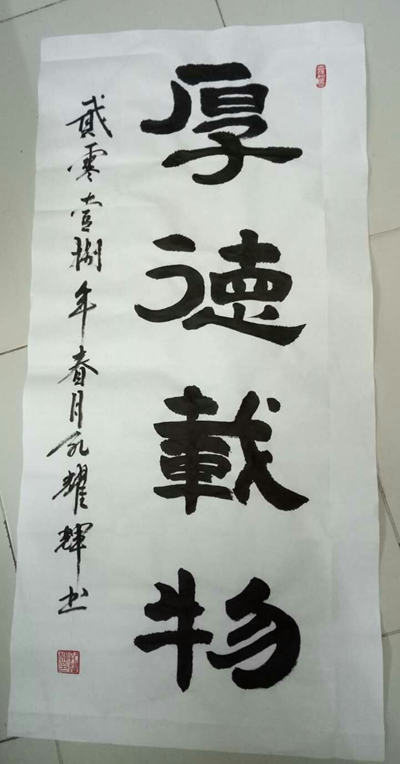 厚德載物
貳零壹捌年春月孔耀輝书